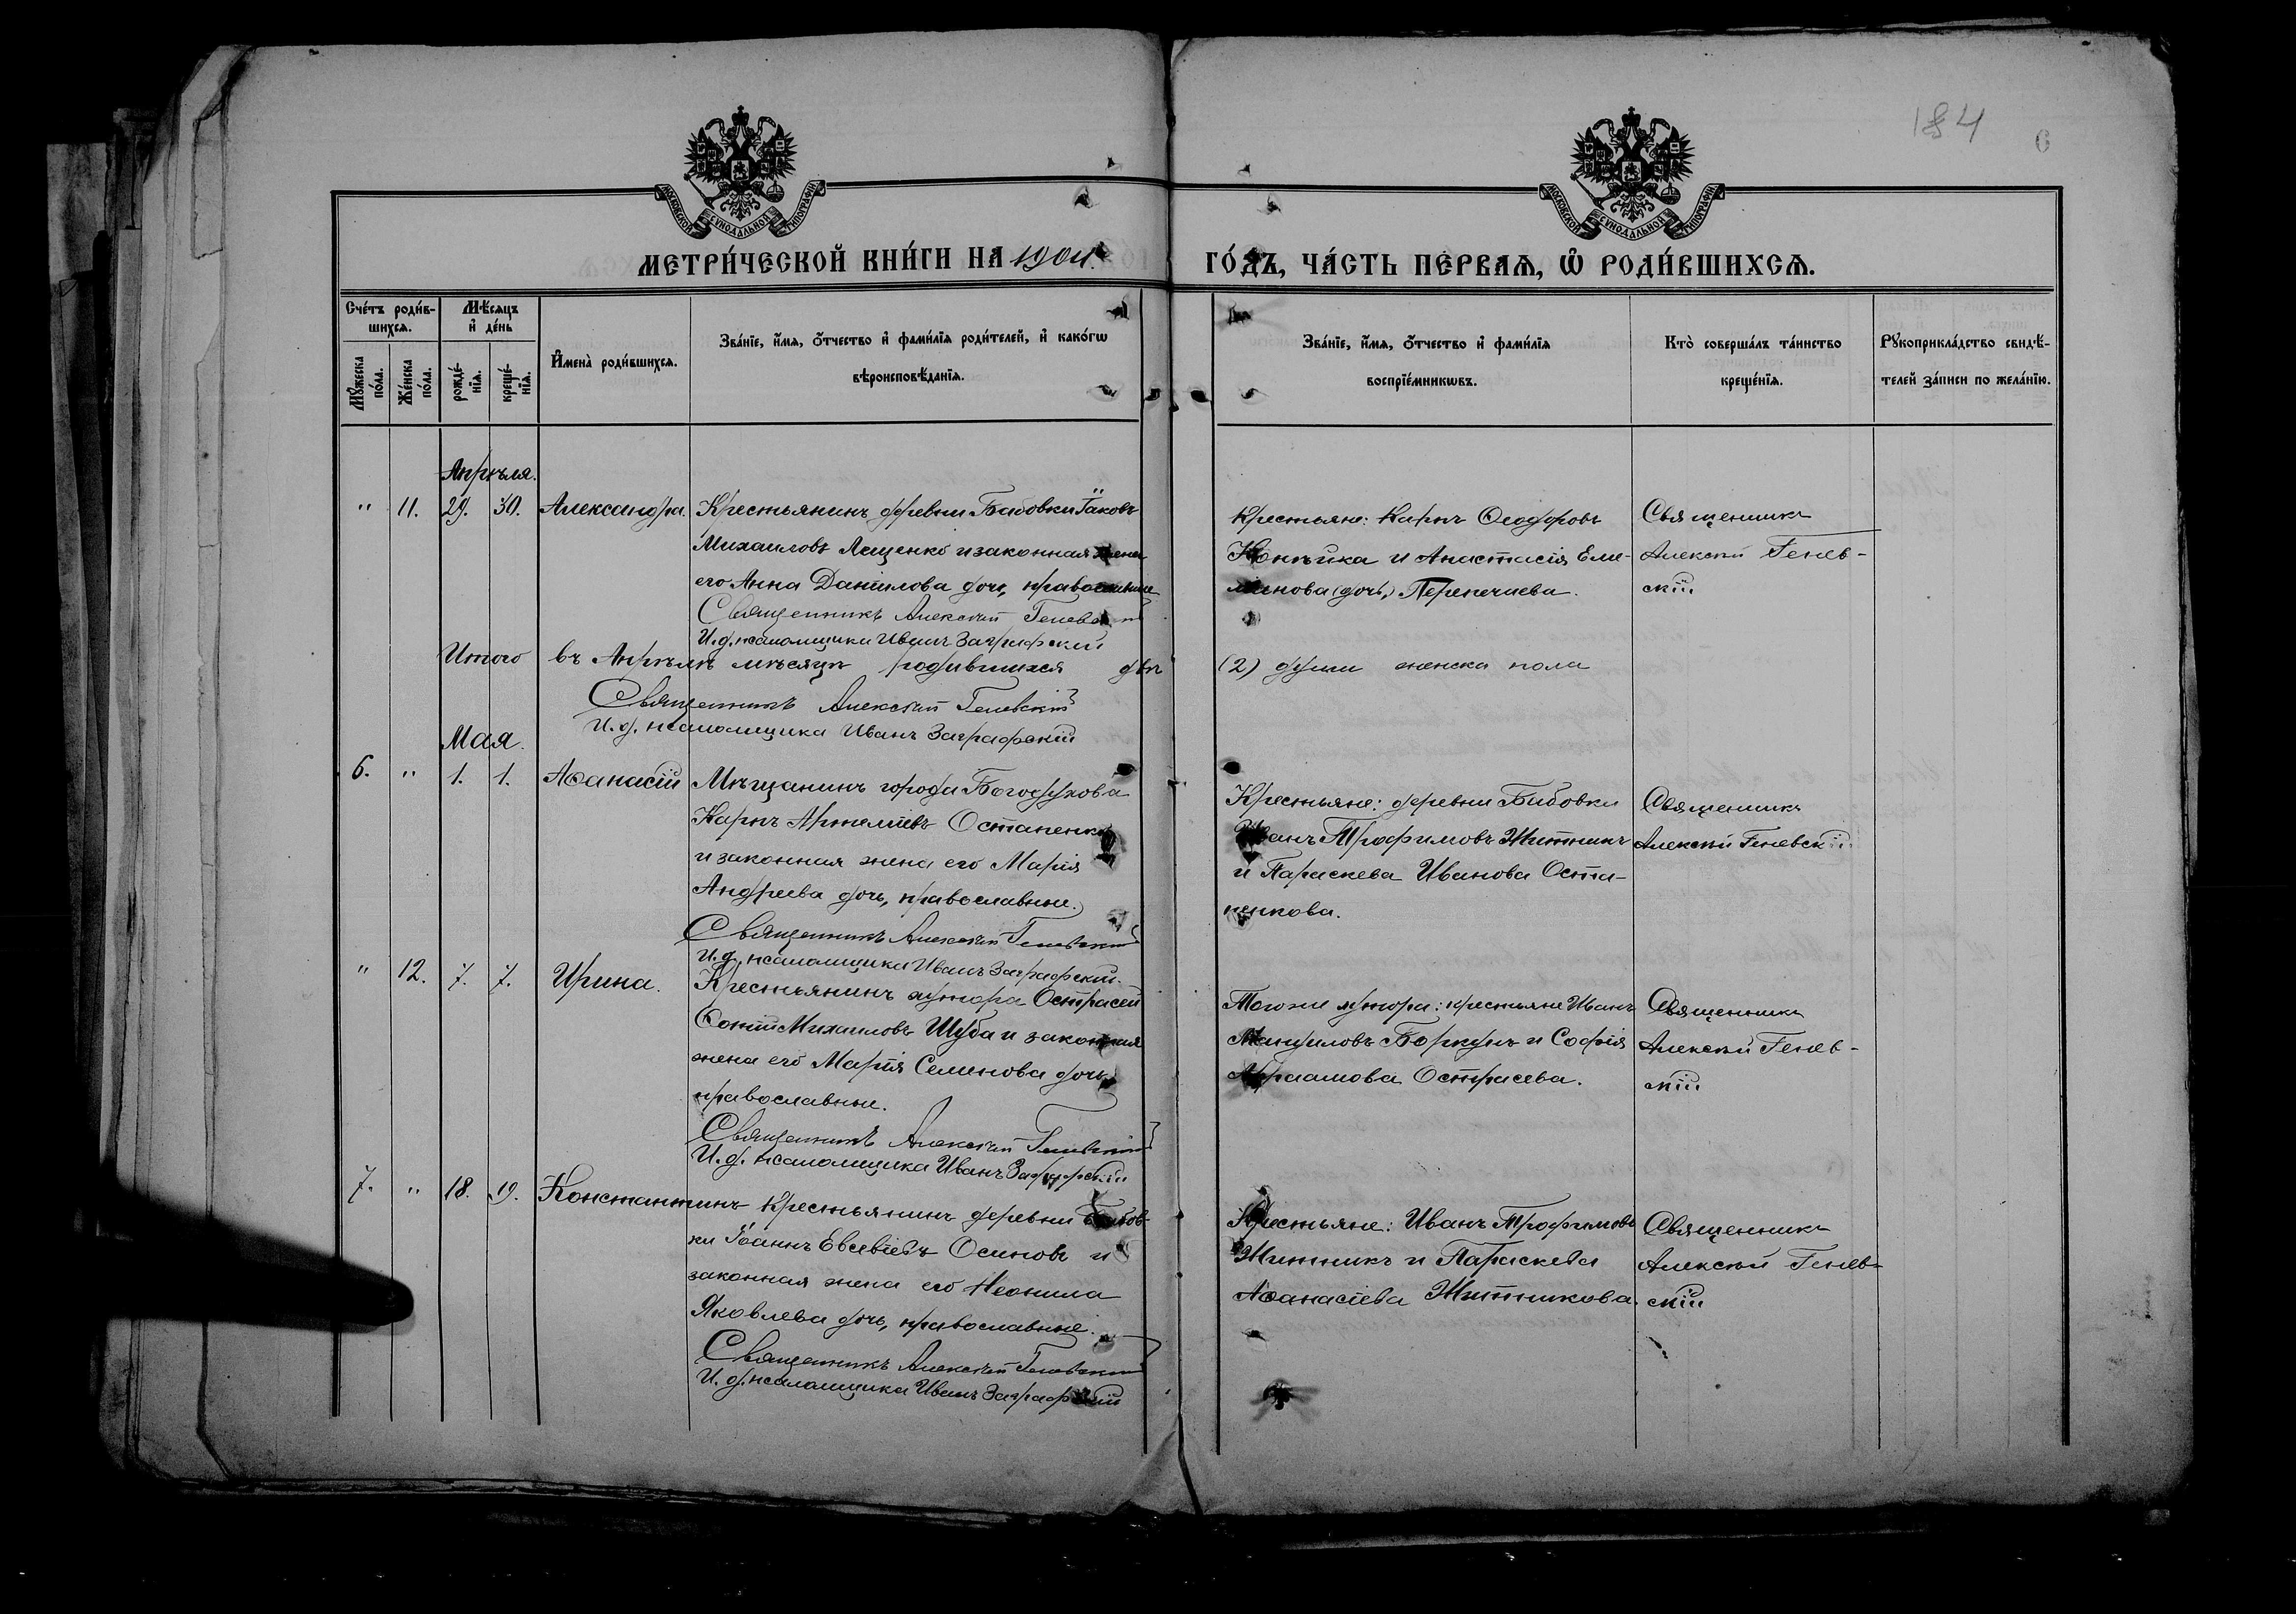 184
6
МОСКОВСКОЙ СѴНОДАЛЬНОЙ ТИПОГРАФІИ
МОСКОВСКОЙ СѴНОДАЛЬНОЙ ТИПОГРАФІИ
МЕТРИ́ЧЕСКОЙ КНИ́ГИ НА 1904. ГО́ДЪ, ЧА́СТЬ ПЕ́РВАѦ, Ѽ РОДИ́ВШИХСѦ.
Сче́тъ роди́в-
шихся.
Мѣ́сяцъ
и҆ де́нь
Мꙋ́жеска по́ла.
Же́нска по́ла.
рожде́-
нїя.
креще́-
нїя.
И҆мена̀ роди́вшихся.
Зва́нїе, и҆́мя, ѻ҆́тчество и҆ фами́лїя роди́телей, и҆ како́гѡ
вѣроисповѣ́данїя.
Зва́нїе, и҆́мя, ѻ҆́тчество и҆ фами́лїя
воспрїе́мникѡвъ.
Кто̀ соверша́лъ та́инство
креще́нїя.
Рꙋкоприкла́дство свидѣ́-
телей за́писи по жела́нїю.
Апрѣля.
" 11. 29. 30. Александра. Крестьянинъ деревни Бабовки Їаковъ
Михаиловъ Лещенко и законная жена
его Анна Даніилова дочь, православные
Священникъ Алексій Геневскій
И. д. псаломщика Иванъ Заграфскій
Крестьяне: Карпъ Ѳеодоровъ
Конѣйка и Анастасія Еме-
ліанова (дочь,) Перепечаева.
Священникъ
Алексій Генев-
скій
Итого въ Апрѣлѣ мѣсяцѣ родившихся двѣ (2) души женска пола
Священникъ Алексій Геневскій
И. д. псаломщика Иванъ Заграфскій
Мая.
6. " 1. 1. Аѳанасій Мѣщанинъ города Богодухова
Карпъ Артеміевъ Остапенко
и законная жена его Марія
Андреева дочь, православные.
Священникъ Алексій Геневскій
И. д. псаломщика Иванъ Заграфскій
Крестьяне: деревни Бабовки
Иванъ Трофимовъ Житникъ
и Параскева Иванова Оста-
пенкова.
Священникъ
Алексій Геневскій
" 12. 7. 7. Ирина. Крестьянинъ хутора Острасей
Фотій Михаиловъ Шуба и законная
жена его Марія Семенова дочь,
православные.
Священникъ Алексій Геневскій
И. д. псаломщика Иванъ Заграфскій
Того же хутора: крестьяне Иванъ
Мануиловъ Боркунъ и Софія
Авраамова Острасева.
Священникъ
Алексій Генев-
скій
7. " 18. 19. Константинъ Крестьянинъ деревни Бабов-
ки Їоаннъ Евсевіевъ Осиновъ и
законная жена его Неонила
Яковлева дочь, православные.
Священникъ Алексій Геневскій
И. д. псаломщика Иванъ Заграфскій
Крестьяне: Иванъ Трофимовъ
Житникъ и Параскева
Аѳанасіева Житникова.
Священникъ
Алексій Генев-
скій